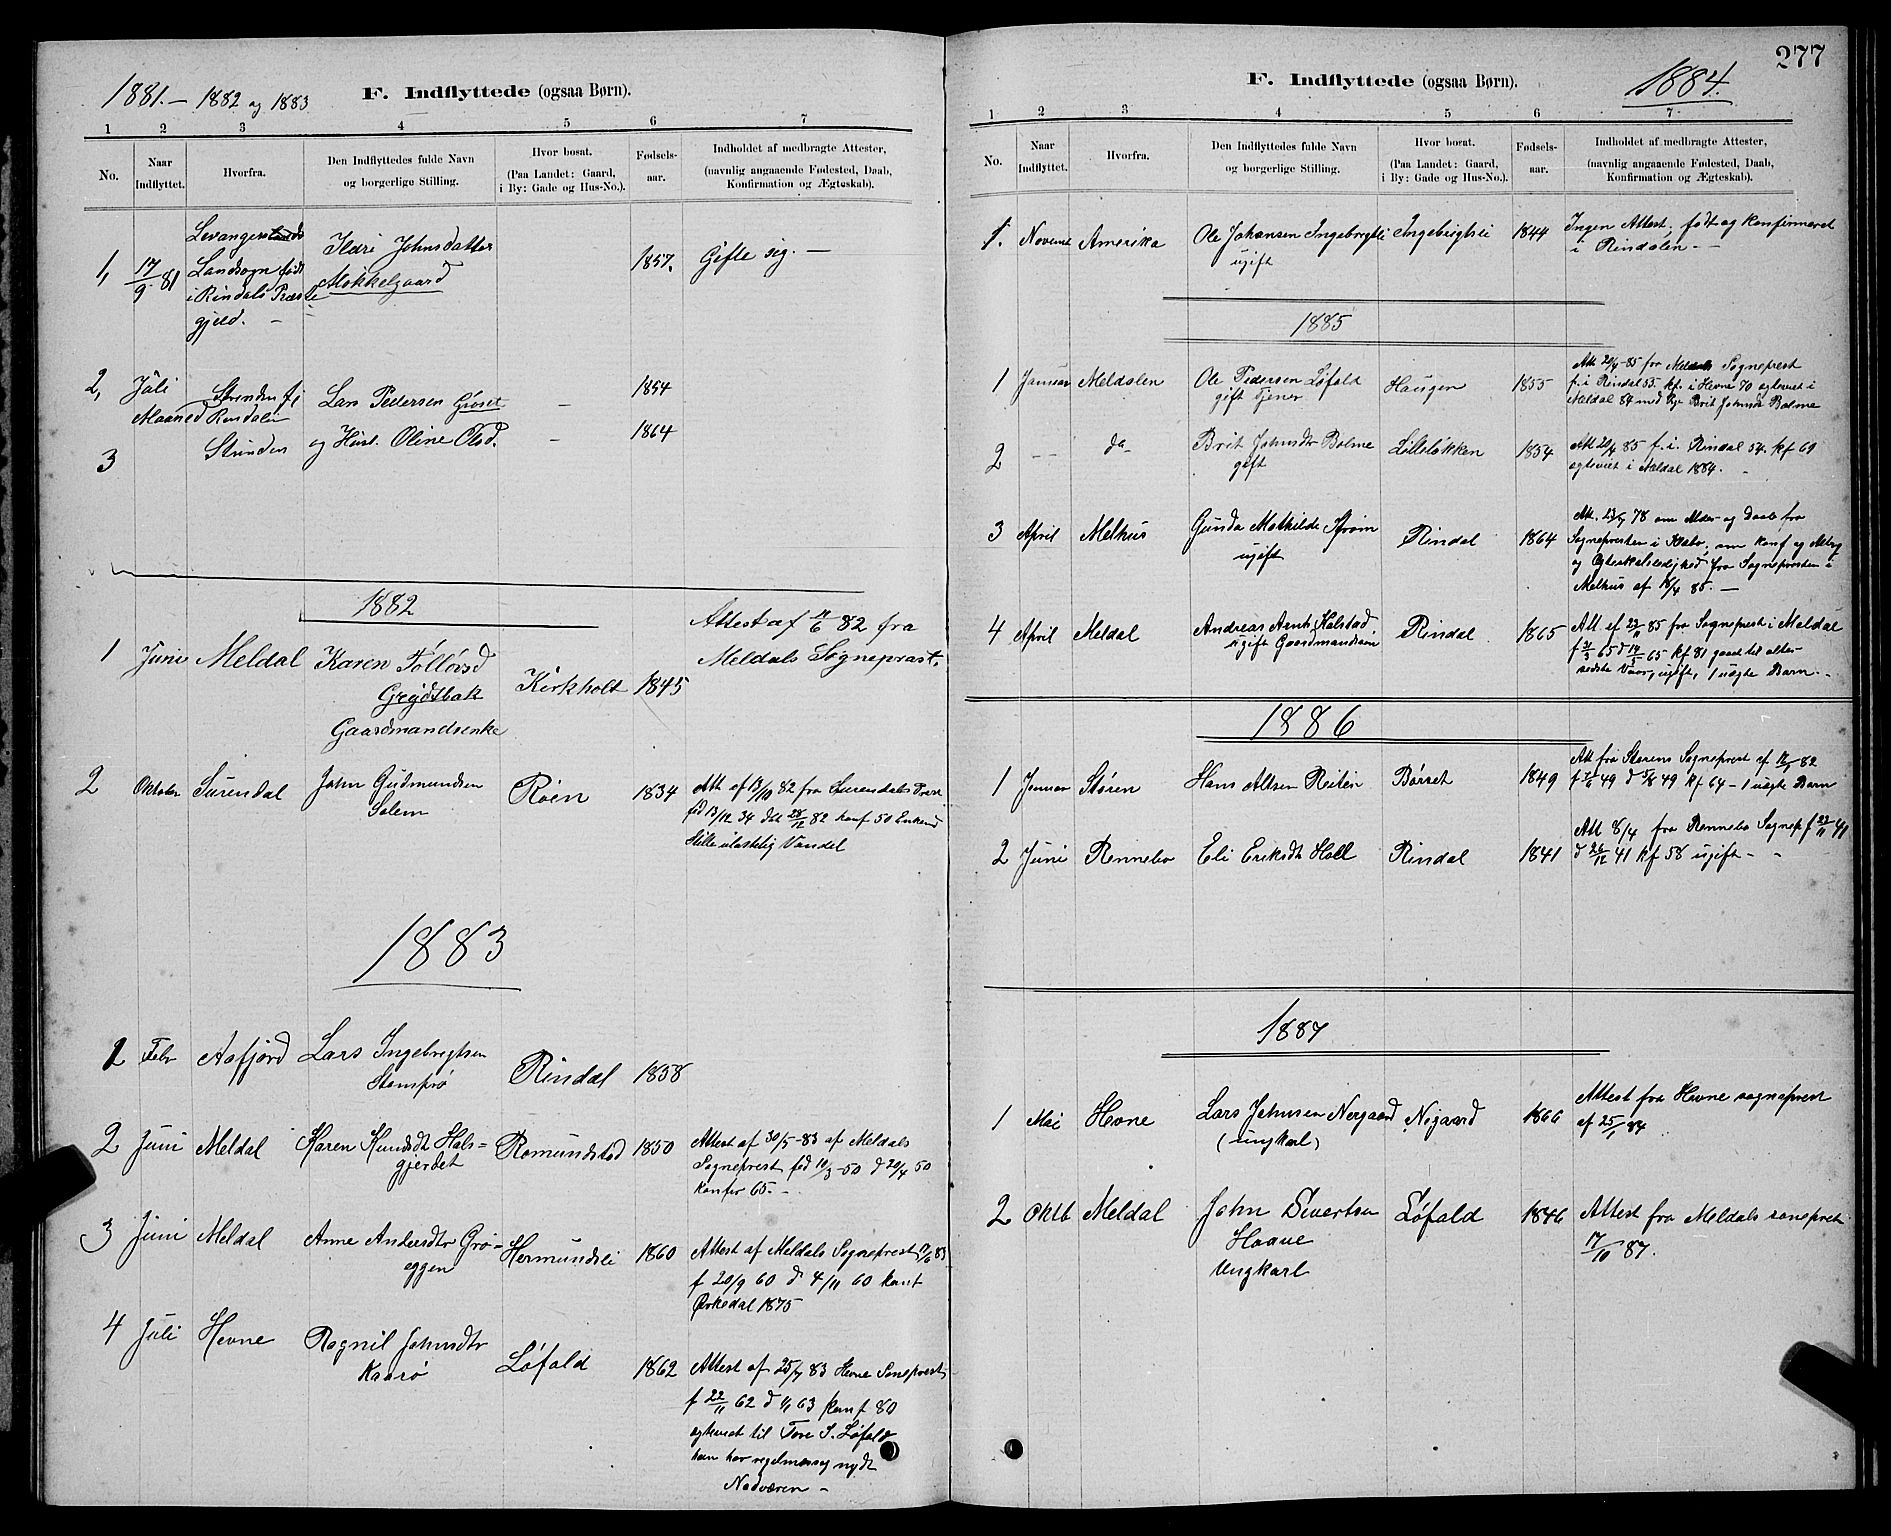 1881.- 1882 og 1883
F. Indflyttede (ogsaa Børn).
1 2 3 4 5 6 7
No.
Naar
Indflyttet.
Hvorfra.
Den Indflyttedes fulde Navn
og borgerlige Stilling.
Hvor bosat.
(Paa Landet: Gaard,
i By: Gade og Hus-No.).
Fødsels-
aar.
Indholdet af medbragte Attester,
(navnlig angaaende Fødested, Daab,
Konfirmation og Ægteskab).
1, 17/9 81
Levanger
Landsogn født
i Rindals Præste
gjeld. -
Ildri Johnsdatter
Mokkelgaard
1857.
Gifte sig. -
2, Juli
Maaned
Rindalen
Lars Pedersen Groset - 1854
3
og Hust. Oline Olsd. - 1864
1882
1 Juni Meldal Karen
Gaardmandsenke
Kirkholt 1845
Attest af 17/6 82 fra
Meldals Sogneprast.
2 Oktober Surendal John Gudmundsen
Solem
Røen 1834
Att. af 13/10 82 fra Surendals Præst
fød 13/12 34 døbt 28/12 82 konf 50 Enkemd
Stille ulastelig Vandel
1883
1 Febr Aafjord Lars Ingebrigtsen
Rindal 1858
2 Juni Meldal Karen Knudsdt Hals-
gjerdet
Romundstad 1850
Attest af 30/5-83 af Meldals
Sogneprest fød 10/3-50 d 20/4 50
konfir 65.-
3 Juni Meldal Anne Andersdtr Grø-
eggen
Hermundsli 1860
Attest af Meldals Sogneprest 17/6 83
f 20/9 60 d 4/11 60 konf
Orkedal 1875
4 Juli Hevne Ragnil Johnsdtr
Kaarø
Løfald 1862
Attest af 25/7 83 Hevne Soneprest
f 22/11 62 d 1/1 63 konf 80
agteviet til Tore S. Løfald
hun har regelmæssig nydt
Nadveren -
277
F. Indflyttede (ogsaa Børn).
1884.
1 2 3 4 5 6 7
No.
Naar
Indflyttet.
Hvorfra.
Den Indflyttedes fulde Navn
og borgerlige Stilling.
Hvor bosat.
(Paa Landet: Gaard,
i By: Gade og Hus-No.).
Fødsels-
aar.
Indholdet af medbragte Attester,
(navnlig angaaende Fødested, Daab,
Konfirmation og Ægteskab).
1. Novemr Amerika Ole Johansen Ingebrigtsli
ugift
Ingebrigtsli 1844
Ingen Attest, født og konfirmeret
i Rindalen -
1885
1 Januar Meldalen Ole Pedersen Løfald
gift Tjener
Haugen 1855
Att 20/4-85 fra Meldals Sogneprest
f. i Rindal 55. kf. i Hevne 70 agteviet i
Meldal 84 med Pige Brit Johnsdt Bolme
2 - - do - Brit Johnsdtr Bolme
gift
Lilleløkken 1854
Att 20/4 85 f. i. Rindal 54. kf 69
agteviet i Meldal 1884.
3 April Melhus Gunda Mathilde Strøm
ugift
Rindal 1864
Att. 78 om Alder og Daab fra
Sognepresten i Klæbo, om konf og
og fra Sognepresten i
Melhus af 18/4 85. -
4 April Meldal Andreas Arnts Halstad
ugift Gaardmandssøn
Rindal 1865
Att af 85 fra Sogneprest i Meldal
f 65 d 65 kf 81 gaaet til alters
sidste Vaar, ugift, 1 uægte Barn -
1886
1 Januar Støren Hans Reiten Børset 1849
Att fra Størens Sogneprest af 82
f 49 d 49 kf 64 - 1 uægte Barn
2 Juni Rennebo Eli Eriksdt Holl Rindal 1841
Att 8/4 fra Rennebo Sognep f 22/11 41
d 26/12 41 kf 58 ugift - -
1887
1 Mai Hevne Lars Johnsen Nergaard
(ungkarl)
1866
Attest fra Hevne sogneprest
af 25/1 84
2 Oktb Meldal John Sivertsen
Haave
Ungkarl
Løfald 1846
Attest fra Meldals soneprest
17/10 87.